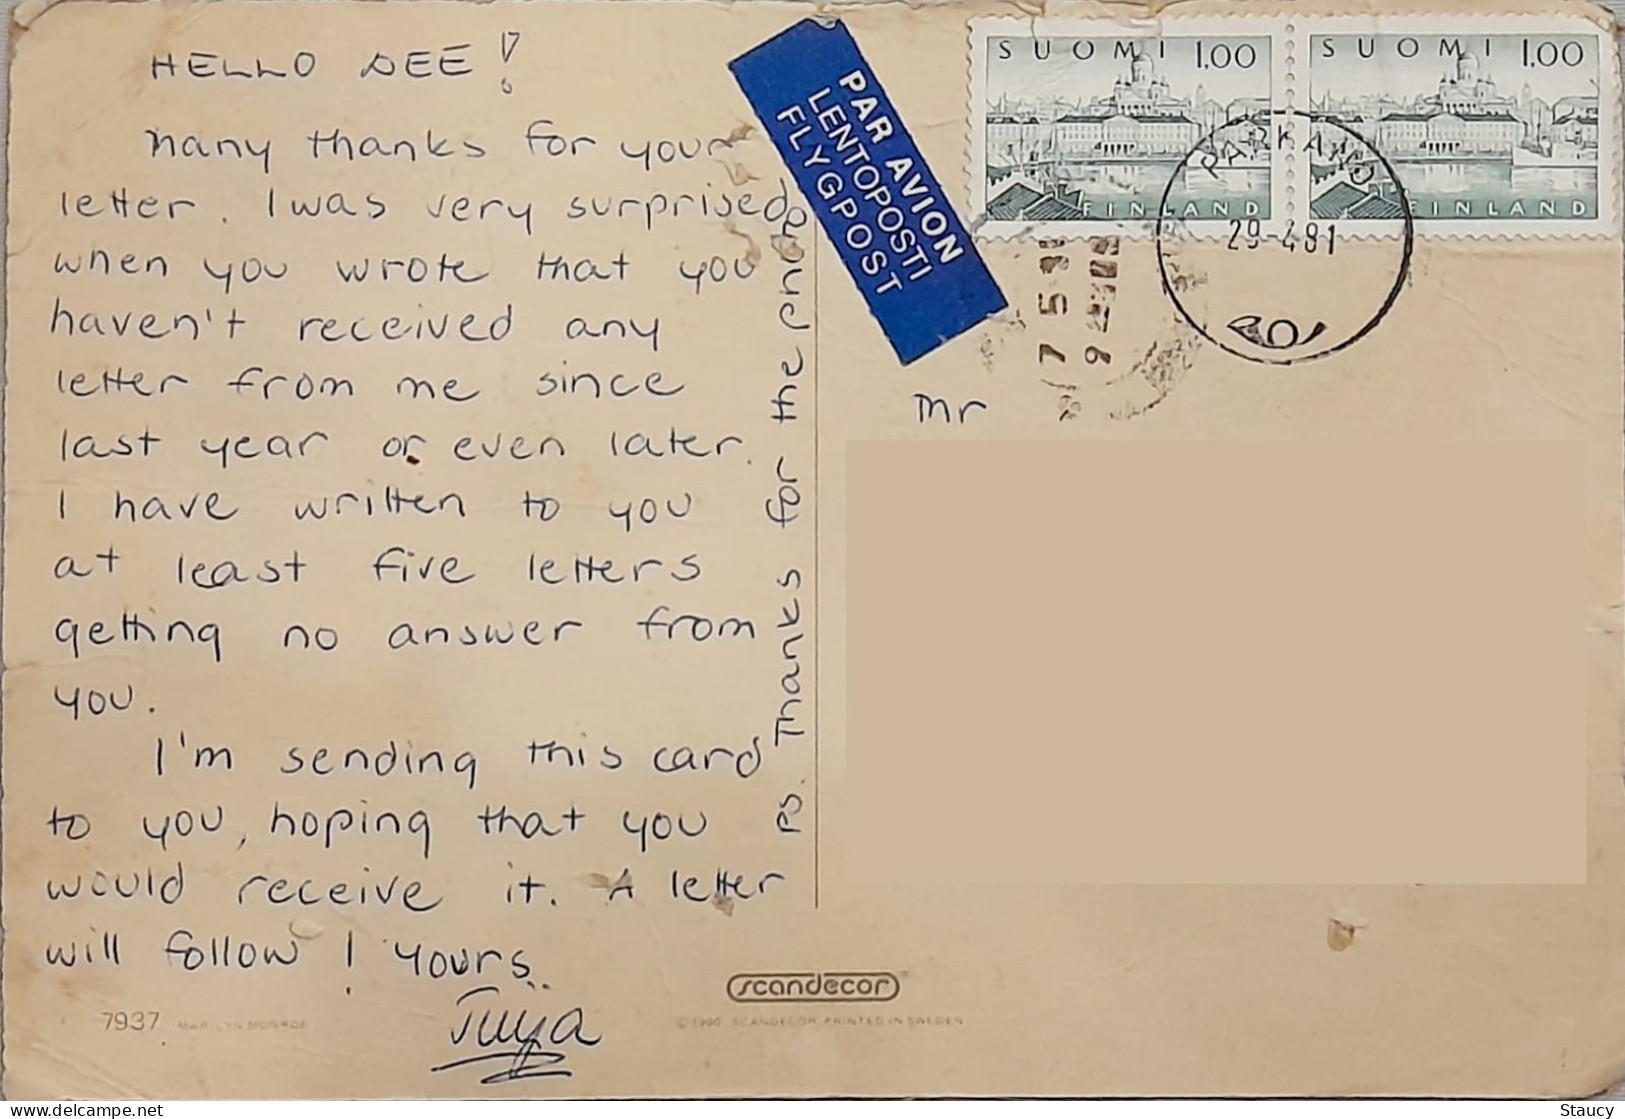 HELLO DEE!
Many thanks for your
letter. I was very surprised
when you wrote that you
haven't received any
letter from me since
last year or even later.
I have written to you
at least five letters
getting no answer from
you.
I'm sending this card
to you, hoping that you
would receive it. A letter
will follow! Yours..
Tuija
Ps. Thanks for the photo
7937 MARILYN MONROE
scandecor
© 1980 SCANDECOR PRINTED IN SWEDEN
PAR AVION
LENTOPOSTI
FLYGPOST
SUOMI 1,00
FINLAND
SUOMI 1,00
FINLAND
PARKANO
29-481
7 5
9
Mr
delcampe.net
Staucy